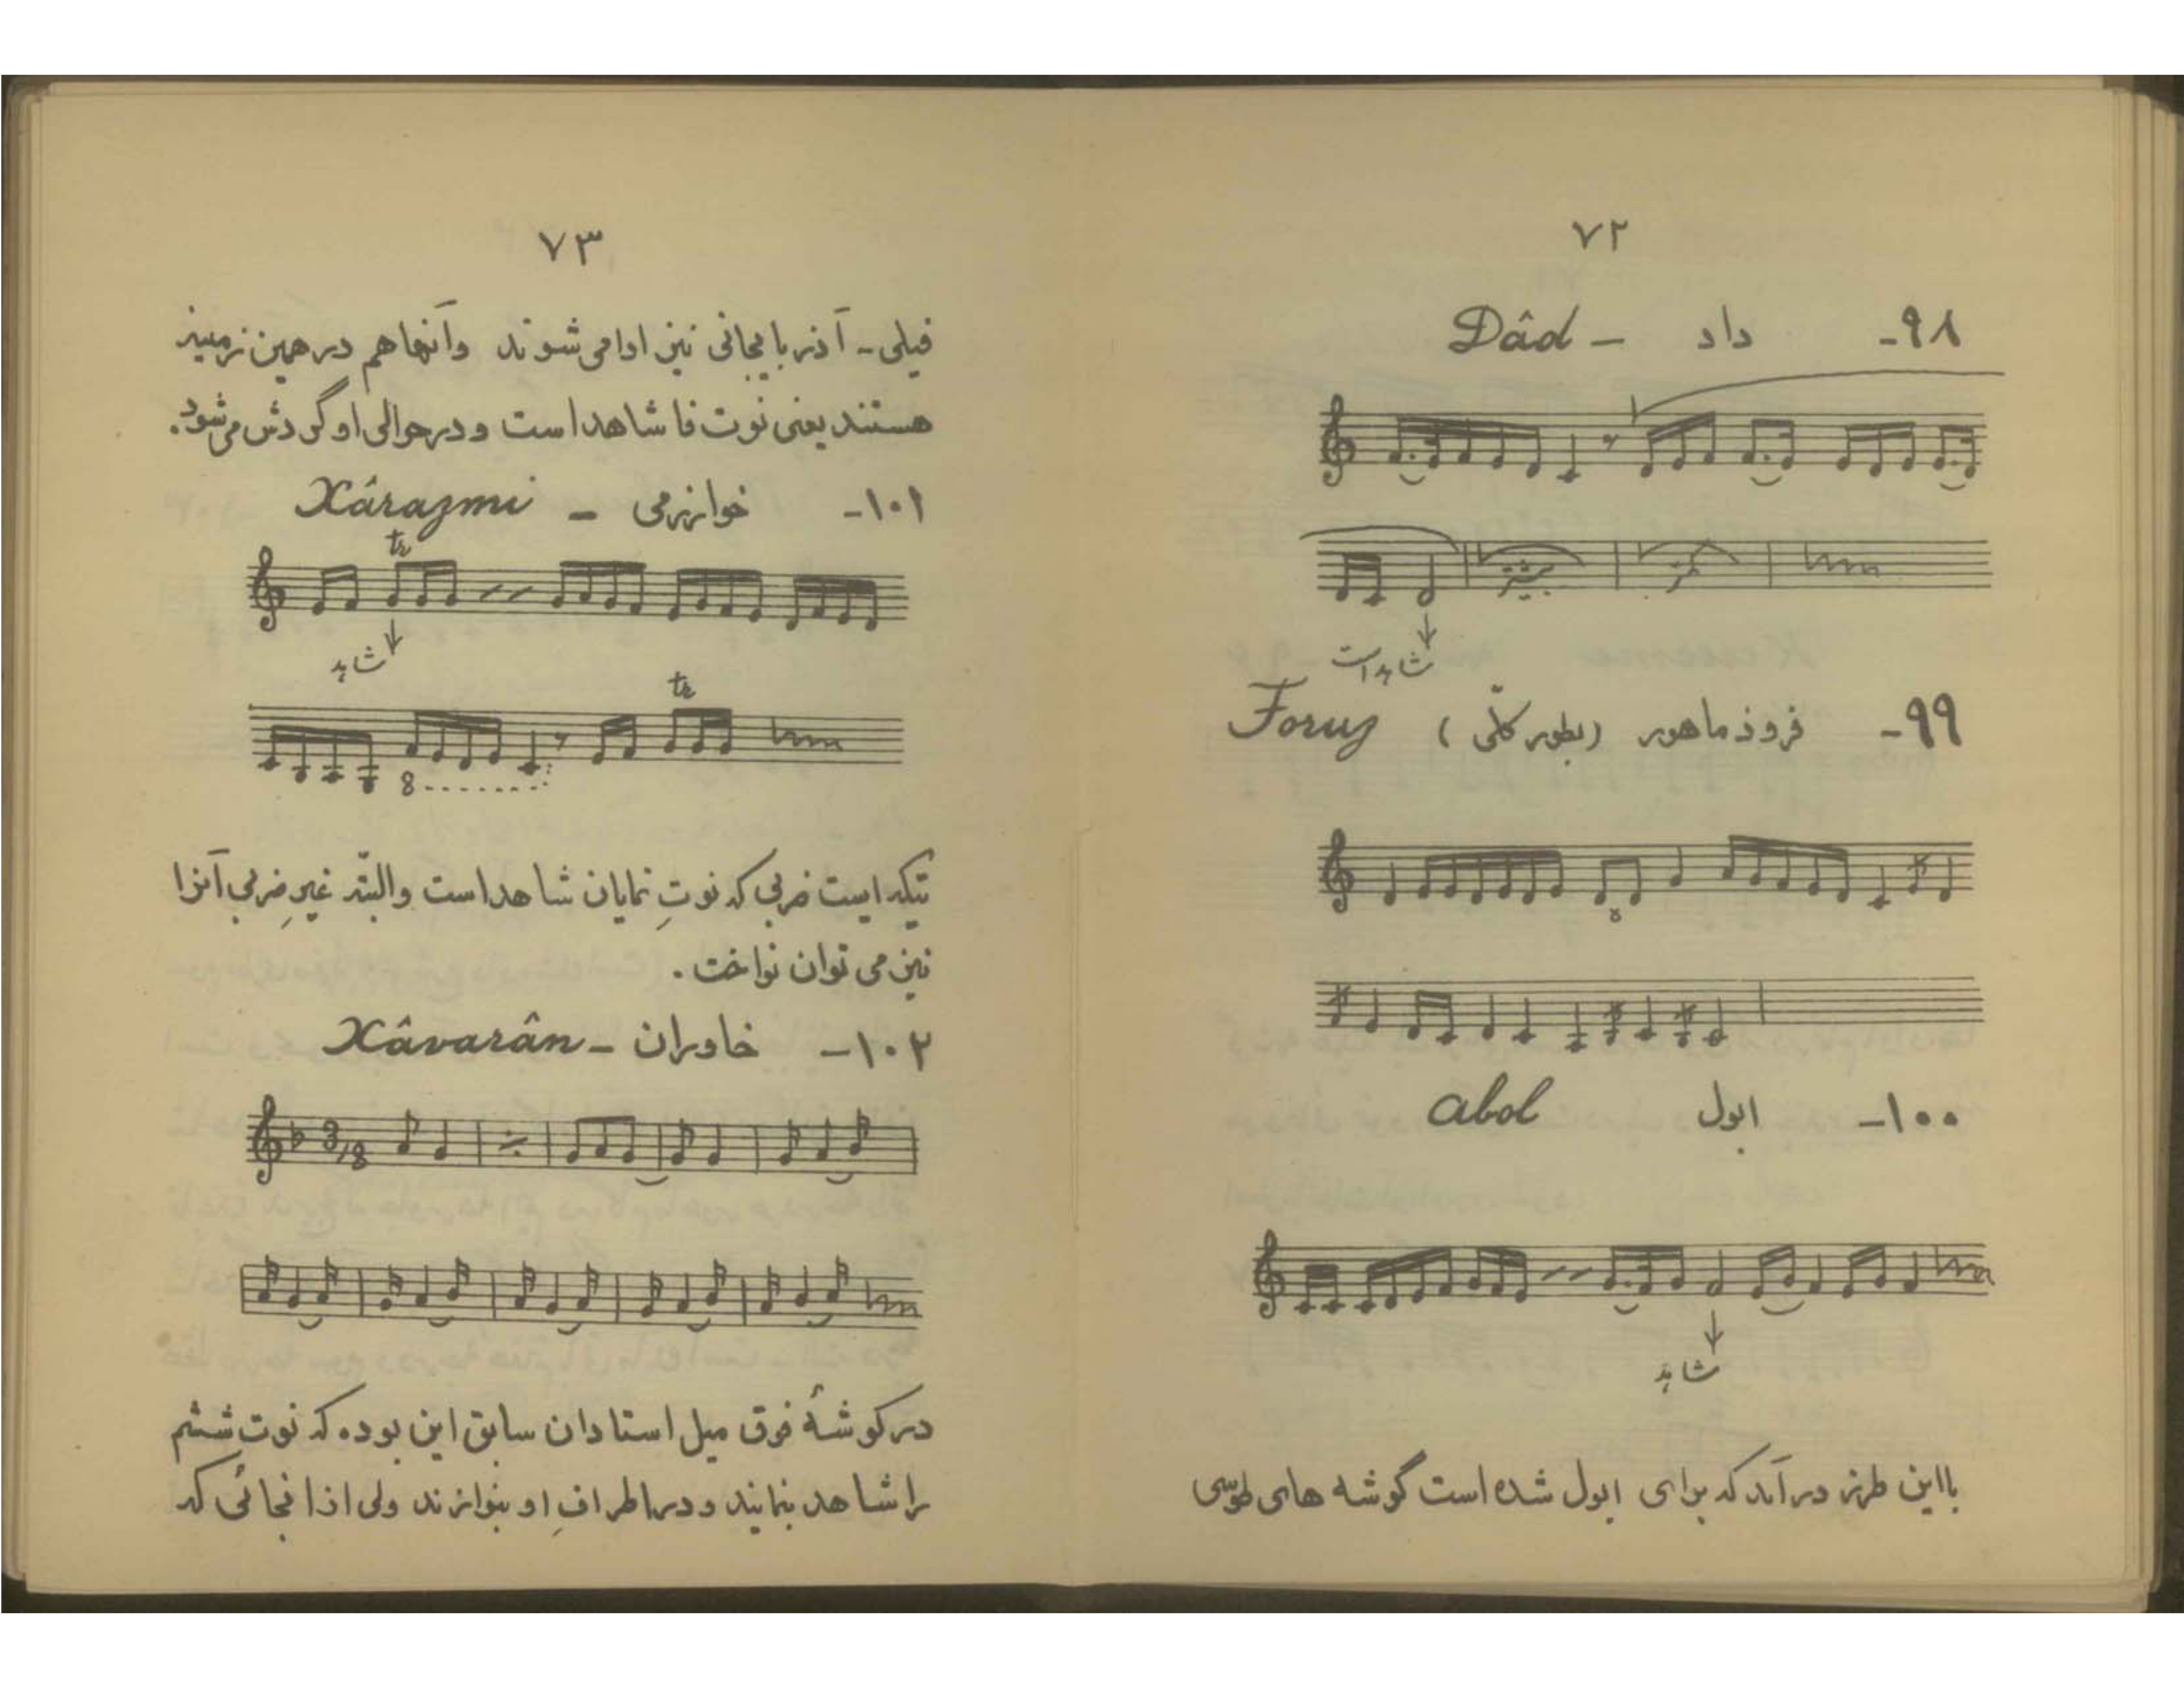 ۷۲
۹۸- داد - Dâd
بیشتر کمتر
شاهد است
۹۹- فرود ماهور (بطور کلّی) Foruz
۸
۱۰۰- ابول abol
شاهد
بااین طرز درآمد که برای ابول شده است گوشه های طوسی
۷۳
فیلی - آذربایجانی نیز ادا می شوند وآنهاهم درهمین زمینه
هستند یعنی نوت فا شاهداست و درحوالی او گردش می شود.
۱۰۱- خوارزمی - Xârazmi
tr
شاهد
tr
8
تیکه ایست ضربی که نوتِ نمایان شاهداست والبتّه غیرِضربی آنرا
نیز می توان نواخت.
۱۰۲- خاوران - Xâvarân
3/8
درگوشهٔ فوق میل استادان سابق این بوده که نوت ششم
را شاهد بنمایند و دراطرافِ او بنوازند ولی ازآنجائی که